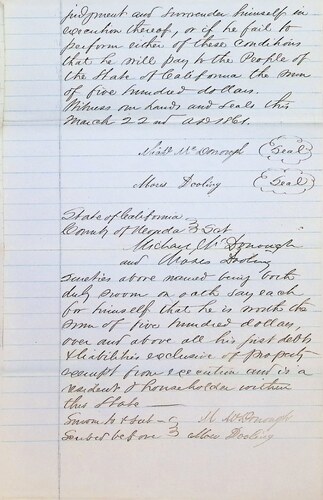 judgment and surrender himself in
execution thereof, or if he fail to
perform either of these conditions
that he will pay to the People of
the State of California the sum
of five hundred dollars.
Witness our hands and seals this
March 22nd AD 1861.
McDonough (Seal)
Moses Dooling (Seal)
State of California
County of Nevada } Sct
Michael McDonough
and Moses Dooling
sureties above named being both
duly sworn on oath say each
for himself that he is worth the
sum of five hundred dollars,
over and above all his just debts
& liabilities exclusive of property
exempt from execution and is a
resident & householder within
this State
Sworn to & sub- } M McDonough
scribed before } Moses Dooling